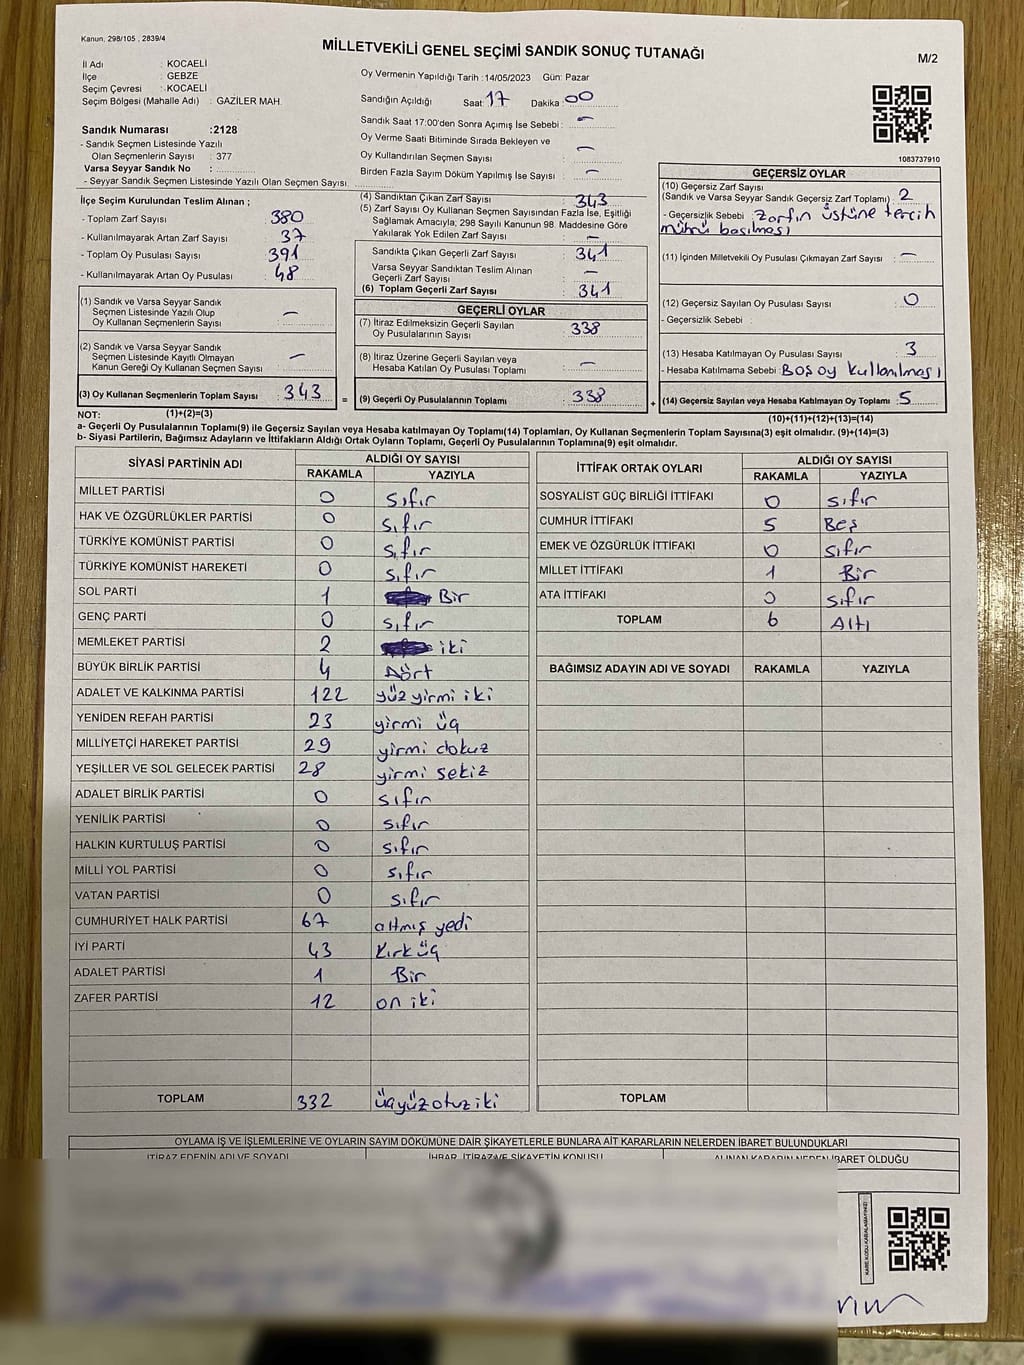 Kanun, 298/105 , 2839/4
MİLLETVEKİLİ GENEL SEÇİMİ SANDIK SONUÇ TUTANAĞI
M/2
İl Adı : KOCAELİ
İlçe : GEBZE
Seçim Çevresi : KOCAELİ
Seçim Bölgesi (Mahalle Adı) : GAZİLER MAH.
Sandık Numarası :2128
- Sandık Seçmen Listesinde Yazılı
Olan Seçmenlerin Sayısı : 377
Varsa Seyyar Sandık No :
- Seyyar Sandık Seçmen Listesinde Yazılı Olan Seçmen Sayısı.
Oy Vermenin Yapıldığı Tarih :14/05/2023 Gün: Pazar
Sandığın Açıldığı Saat: 17 Dakika : 00
Sandık Saat 17:00'den Sonra Açımış İse Sebebi : –
Oy Verme Saati Bitiminde Sırada Bekleyen ve
Oy Kullandırılan Seçmen Sayısı : –
Birden Fazla Sayım Döküm Yapılmış İse Sayısı : –
1083737910
İlçe Seçim Kurulundan Teslim Alınan ;
- Toplam Zarf Sayısı : 380
- Kullanılmayarak Artan Zarf Sayısı : 37
- Toplam Oy Pusulası Sayısı : 391
- Kullanılmayarak Artan Oy Pusulası : 48
(1) Sandık ve Varsa Seyyar Sandık
Seçmen Listesinde Yazılı Olup
Oy Kullanan Seçmenlerin Sayısı : –
(2) Sandık ve Varsa Seyyar Sandık
Seçmen Listesinde Kayıtlı Olmayan
Kanun Gereği Oy Kullanan Seçmen Sayısı : –
(3) Oy Kullanan Seçmenlerin Toplam Sayısı : 343
(1)+(2)=(3)
(4) Sandıktan Çıkan Zarf Sayısı : 343
(5) Zarf Sayısı Oy Kullanan Seçmen Sayısından Fazla İse, Eşitliği
Sağlamak Amacıyla; 298 Sayılı Kanunun 98. Maddesine Göre
Yakılarak Yok Edilen Zarf Sayısı : –
Sandıkta Çıkan Geçerli Zarf Sayısı : 341
Varsa Seyyar Sandıktan Teslim Alınan
Geçerli Zarf Sayısı : –
(6) Toplam Geçerli Zarf Sayısı : 341
GEÇERLİ OYLAR
(7) İtiraz Edilmeksizin Geçerli Sayılan
Oy Pusulalarının Sayısı : 338
(8) İtiraz Üzerine Geçerli Sayılan veya
Hesaba Katılan Oy Pusulası Toplamı : –
= (9) Geçerli Oy Pusulalarının Toplamı : 338
GEÇERSİZ OYLAR
(10) Geçersiz Zarf Sayısı
(Sandık ve Varsa Seyyar Sandık Geçersiz Zarf Toplamı) : 2
- Geçersizlik Sebebi : Zarfın üstüne tercih
mührü basılması
(11) İçinden Milletvekili Oy Pusulası Çıkmayan Zarf Sayısı : –
(12) Geçersiz Sayılan Oy Pusulası Sayısı : 0
- Geçersizlik Sebebi :
(13) Hesaba Katılmayan Oy Pusulası Sayısı : 3
- Hesaba Katılmama Sebebi : Boş oy kullanılması
+ (14) Geçersiz Sayılan veya Hesaba Katılmayan Oy Toplamı : 5
(10)+(11)+(12)+(13)=(14)
NOT:
a- Geçerli Oy Pusulalarının Toplamı(9) ile Geçersiz Sayılan veya Hesaba katılmayan Oy Toplamı(14) Toplamları, Oy Kullanan Seçmenlerin Toplam Sayısına(3) eşit olmalıdır. (9)+(14)=(3)
b- Siyasi Partilerin, Bağımsız Adayların ve İttifakların Aldığı Ortak Oyların Toplamı, Geçerli Oy Pusulalarının Toplamına(9) eşit olmalıdır.
SİYASİ PARTİNİN ADI ALDIĞI OY SAYISI
RAKAMLA YAZIYLA
MİLLET PARTİSİ 0 sıfır
HAK VE ÖZGÜRLÜKLER PARTİSİ 0 sıfır
TÜRKİYE KOMÜNİST PARTİSİ 0 sıfır
TÜRKİYE KOMÜNİST HAREKETİ 0 sıfır
SOL PARTİ 1 Bir
GENÇ PARTİ 0 sıfır
MEMLEKET PARTİSİ 2 iki
BÜYÜK BİRLİK PARTİSİ 4 Dört
ADALET VE KALKINMA PARTİSİ 122 yüz yirmi iki
YENİDEN REFAH PARTİSİ 23 yirmi üç
MİLLİYETÇİ HAREKET PARTİSİ 29 yirmi dokuz
YEŞİLLER VE SOL GELECEK PARTİSİ 28 yirmi sekiz
ADALET BİRLİK PARTİSİ 0 sıfır
YENİLİK PARTİSİ 0 sıfır
HALKIN KURTULUŞ PARTİSİ 0 sıfır
MİLLİ YOL PARTİSİ 0 sıfır
VATAN PARTİSİ 0 sıfır
CUMHURİYET HALK PARTİSİ 67 altmış yedi
İYİ PARTİ 43 Kırk üç
ADALET PARTİSİ 1 Bir
ZAFER PARTİSİ 12 on iki
TOPLAM 332 üçyüzotuziki
İTTİFAK ORTAK OYLARI ALDIĞI OY SAYISI
RAKAMLA YAZIYLA
SOSYALİST GÜÇ BİRLİĞİ İTTİFAKI 0 sıfır
CUMHUR İTTİFAKI 5 Beş
EMEK VE ÖZGÜRLÜK İTTİFAKI 0 sıfır
MİLLET İTTİFAKI 1 Bir
ATA İTTİFAKI 0 sıfır
TOPLAM 6 Altı
BAĞIMSIZ ADAYIN ADI VE SOYADI RAKAMLA YAZIYLA
TOPLAM
OYLAMA İŞ VE İŞLEMLERİNE VE OYLARIN SAYIM DÖKÜMÜNE DAİR ŞİKAYETLERLE BUNLARA AİT KARARLARIN NELERDEN İBARET BULUNDUKLARI
İTİRAZ EDENİN ADI VE SOYADI İHBAR, İTİRAZ VE ŞİKAYETİN KONUSU ALINAN KARARIN NEDEN İBARET OLDUĞU